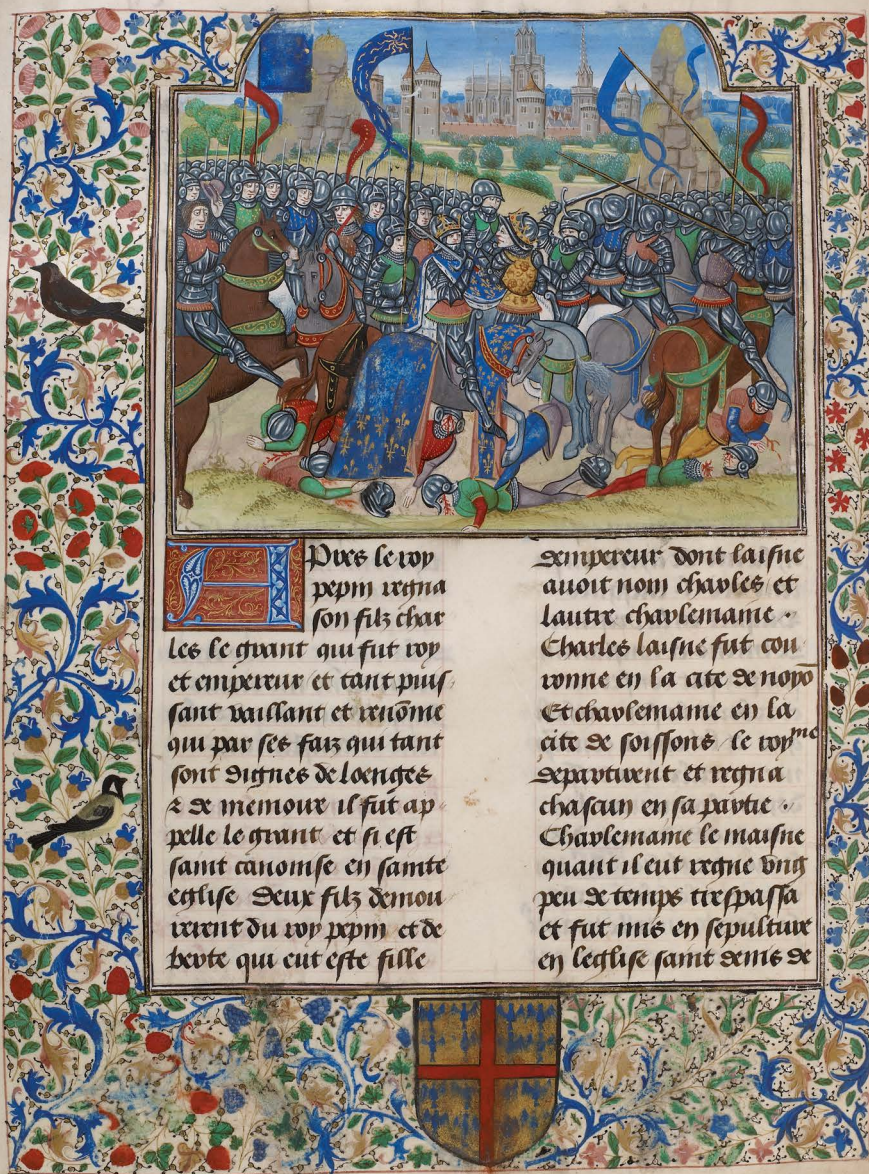 Apres le roy
pepin regna
son filz char
les le grant qui fut roy
et empereur et tant puis
sant vaillant et renōme
qui par ses faiz qui tant
sont dignes de loenges
⁊ de memoire il fut ap
pelle le grant et si est
saint canonise en sainte
eglise Deux filz demou
rerent du roy pepin et de
berte qui eut este fille
dempereur dont laisne
auoit nom charles et
lautre charlemaine .
Charles laisne fut cou
ronne en la cite de noyō
Et charlemaine en la
cite de soissons le royme
departirent et regna
chascun en sa partie .
Charlemaine le maisne
quant il eut regne vng
peu de temps trespassa
et fut mis en sepulture
en leglise saint denis de